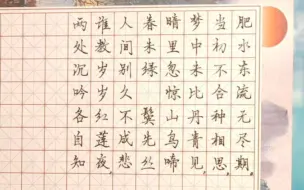 肥水东流无尽期,
当初不合种相思.
梦中未比丹青见,
暗里忽惊山鸟啼.
春未绿 鬓先丝.
人间别久不成悲.
谁教岁岁红莲夜,
两处沉吟各自知